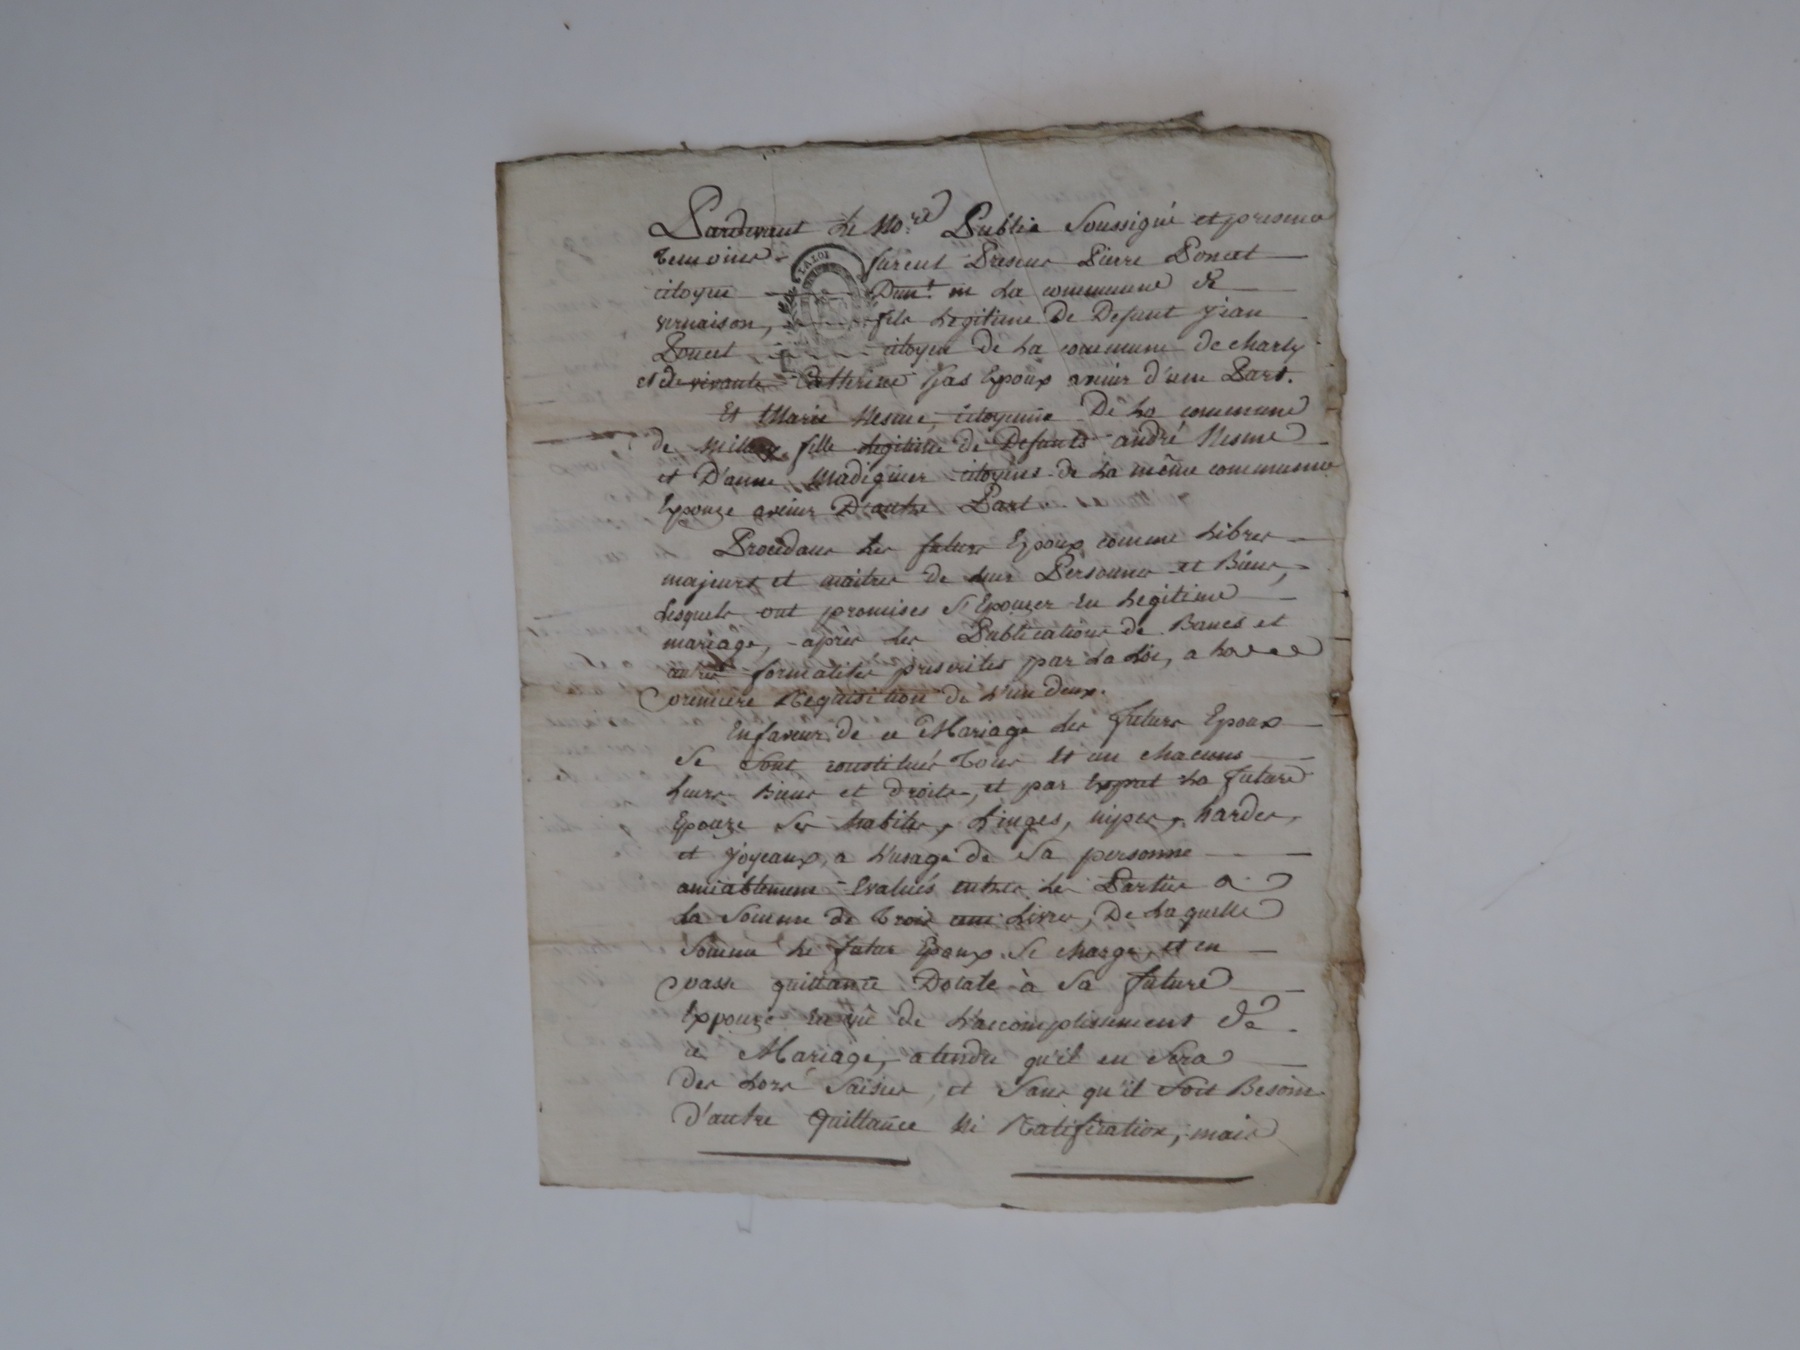 Pardevant Le No.re Public Soussigné et presence
Temoins furent Presens Pierre Poncet
LA LOI
citoyen Dem.t en La commune de
vernaison, fils Legitime De Defunt Jean
Poncet citoyen de La commune de charly
et de vivante Catherine Gas Epoux avenir d'une Part.
Et Marie Nesme, citoyenne De La commune
de fille Legitime de Defunts andré Nesme
et D'anne Madiguier citoyens de La même commune
Epouze avenir D'autre Part.
Procedans Les futurs Epoux comme Libres
majeurs et maitres de Leur Personnes et Biens,
Lesquels ont promises S'Epouzer En Legitime
mariage, après Les Publications de Bancs et
autres formalités prescrites par La Loi, a La
premiere Requisition de L'un deux.
En faveur de ce Mariage Les futurs Epoux
Se Sont constitués Tous Et un chacuns
Leurs Biens et droits, et par Exprest La future
Epouze Ses habits, Linges, nipes, hardes,
et Joyeaux, a L'usage de Sa personne
amiablement Evalués entre Les Parties a
La Somme de Trois cent Livres, De Laquelle
Somme Le futur Epoux Se charge, et en
passe quittance Dotale à Sa future
Expouze En vüe de L'accomplissement de
ce Mariage, atendu qu'il en Sera
Des Lors Saisies, et Sans qu'il Soit Besoin
D'autre Quittance Ni Ratification, mais